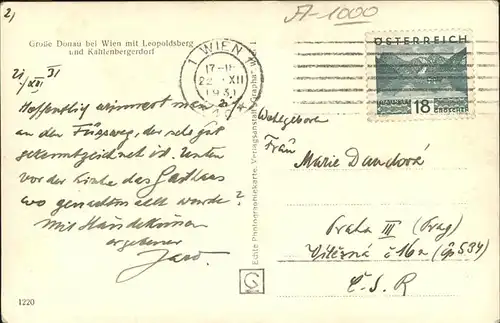 2)
A-1000
Große Donau bei Wien mit Leopoldsberg
und Kahlenbergerdorf
1 WIEN 1
17-
22. XII
1931
ÖSTERREICH
18
GROSCHEN
21/XII 31
Hoffentlich erinnert man
an den Fussweg, der sehr gut
gekennzeichnet ist. Unten
vor der Kirche das Gasthaus
wo genachtmahlt wurde?
Mit Händeküssen
ergebener
Jaro.
Echte Photographiekarte. Verlagsanstalt
Wohlgeboren
Frau
Marie Dandová
Praha III (Prag)
Vítězná č 16a (čp 534)
Č. S. R
G
1220